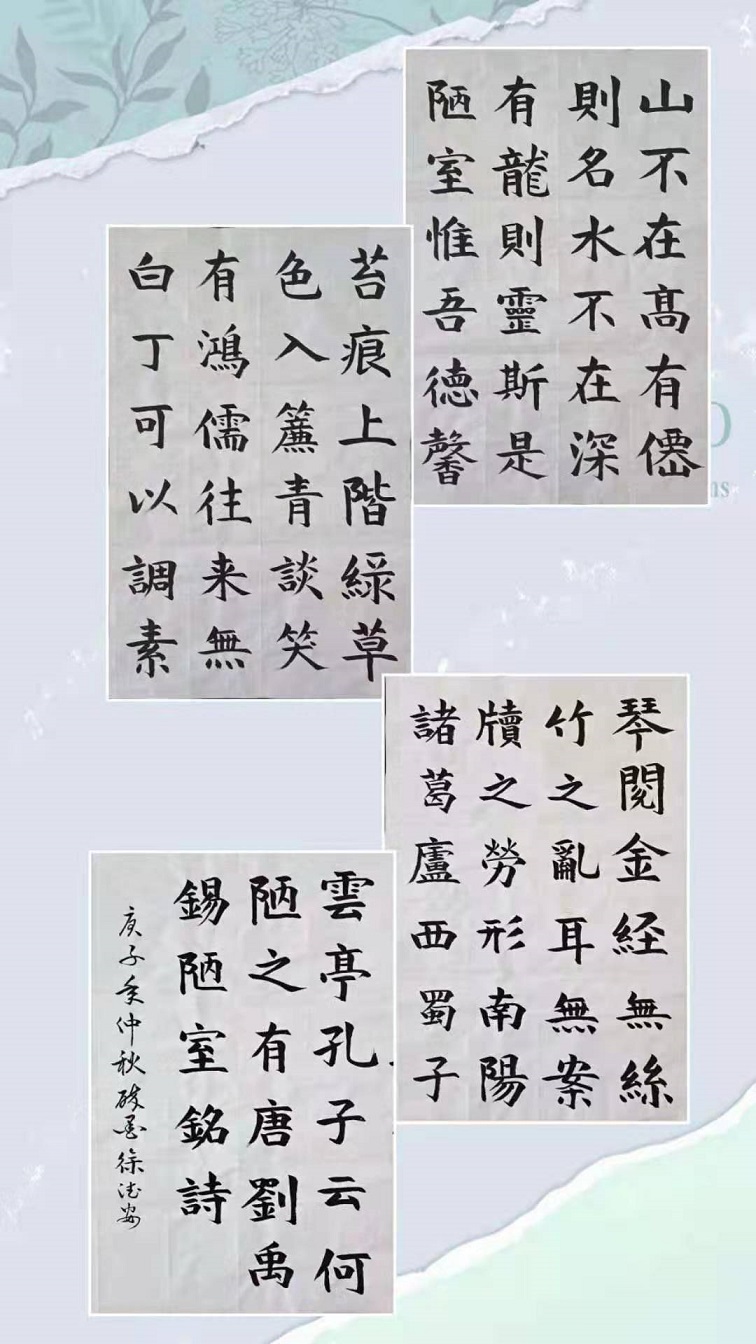 山不在髙有僊
則名水不在深
有龍則靈斯是
陋室惟吾德馨
苔痕上階綠草
色入簾青談笑
有鴻儒往来無
白丁可以調素
琴閱金経無絲
竹之亂耳無案
牘之勞形南陽
諸葛廬西蜀子
雲亭孔子云何
陋之有唐劉禹
錫陋室銘詩
庚子年仲秋
徐
ns